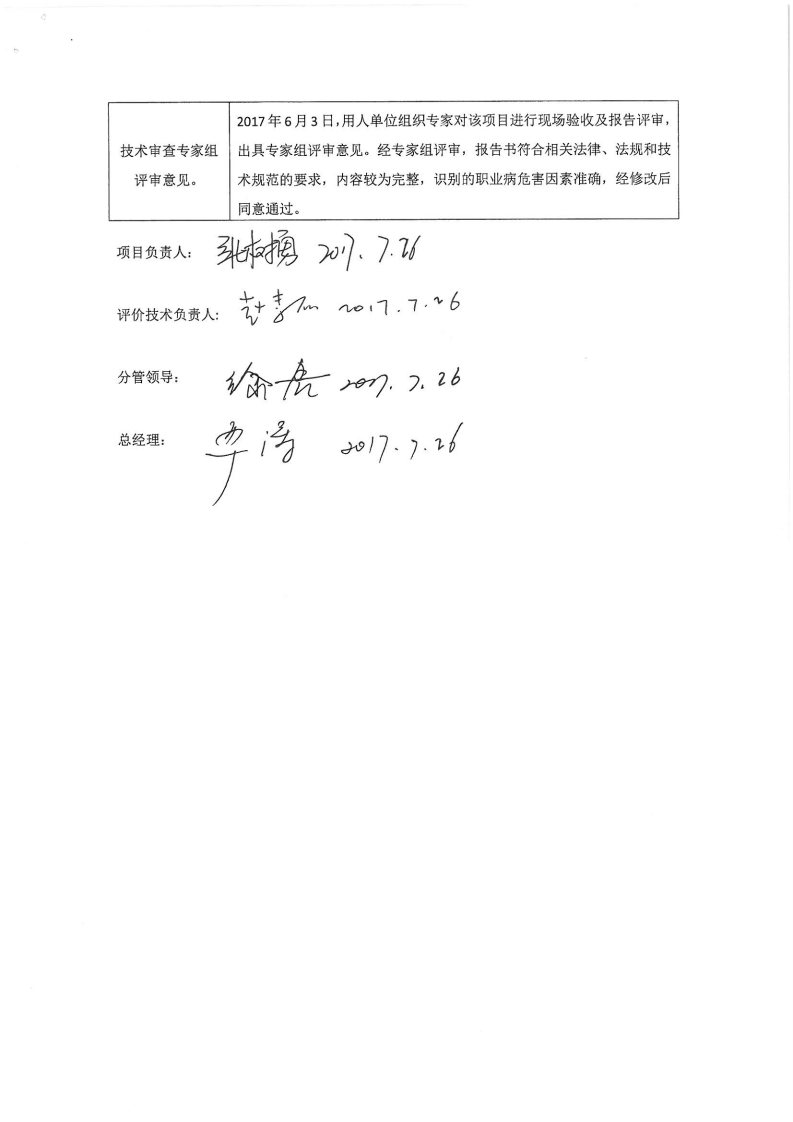 技术审查专家组
评审意见。
2017年6月3日,用人单位组织专家对该项目进行现场验收及报告评审,
出具专家组评审意见。经专家组评审，报告书符合相关法律、法规和技
术规范的要求，内容较为完整，识别的职业病危害因素准确，经修改后
同意通过。
项目负责人: 2017.7.26
评价技术负责人: 2017.7.26
分管领导: 2017.7.26
总经理: 2017.7.26